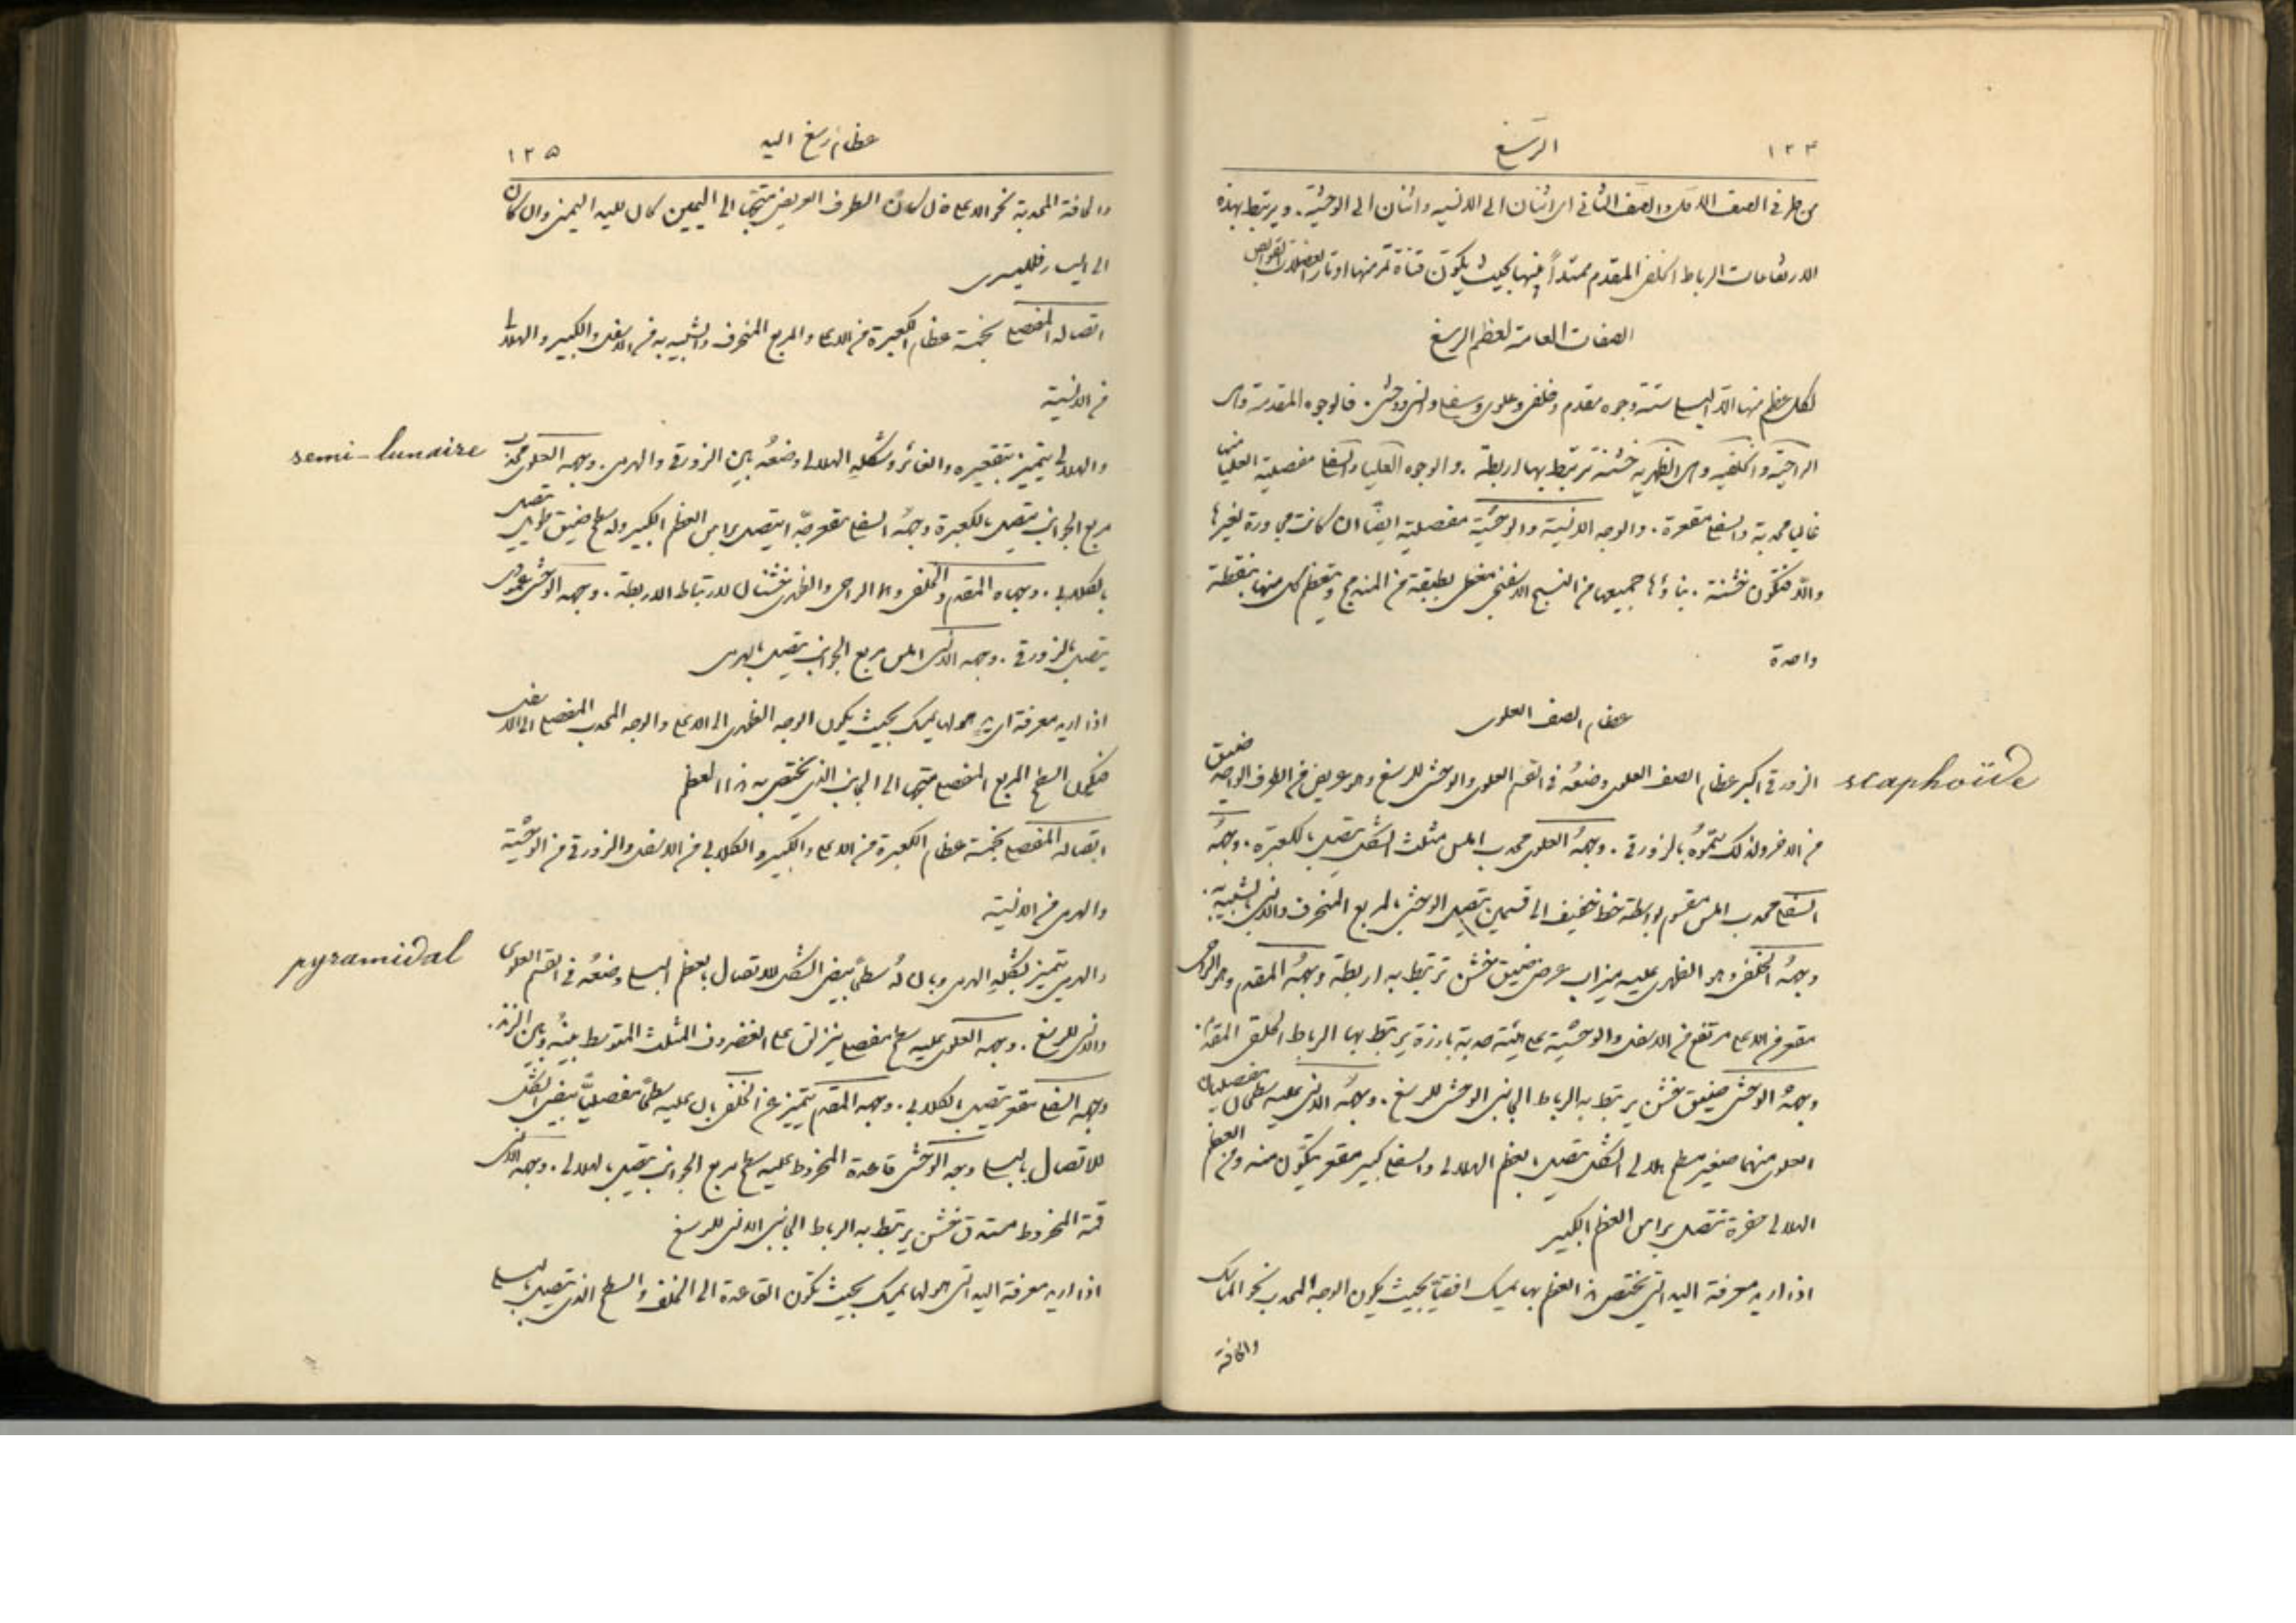 ١٢٤ الرسغ
من طرفي الصف الاول والصف الثاني اي اثنان الى الانسية واثنان الى الوحشية. ويرتبط بهذه
الارتفاعات الرباط الحلقي المقدم ممتداً بينها بحيث يكون قناة تمر منها اوتار العضلات القوابض
الصفات العامة لعظم الرسغ
لكل عظم منها الا البسلي ستة وجوه مقدم وخلفي وعلوي وسفلي وانسي ووحشي. فالوجوه المقدمة وهي
الراحية والخلفية وهي الظهرية خشنة ترتبط بها اربطة. والوجوه العليا والسفلى مفصلية العليا منها
غالبا محدبة والسفلى مقعرة. والوجه الانسية والوحشية مفصلية ايضًا ان كانت مجاورة لغيرها
والا فتكون خشنة. بناؤها جميعها من النسيج الاسفنجي مغطى بطبقة من المندمج وتعظم كل منها بنقطة
واحدة
عظام الصف العلوي
الزورقي اكبر عظام الصف العلوي وضعه في القسم العلوي والوحشي للرسغ وهو عريض من الطرف الواحد ضيق
scaphoïde
من الاخر ولذلك سموه بالزورقي. وجهه العلوي محدب املس مثلث الشكل يتصل بالكعبرة. وجهه
السفلي محدب املس مقسوم بواسطة خط خفيف الى قسمين يتصل الوحشي بالمربع المنحرف والانسي بشبيه به.
وجهه الخلفي وهو الظهري عليه ميزاب عرضي ضيق خشن ترتبط به اربطة وجهه المقدم وهو الراحي
مقعر من الاعلى مرتفع من الاسفل والوحشية على هيئة حدبة بارزة يرتبط بها الرباط الحلقي المقدم.
وجهه الوحشي ضيق خشن يرتبط به الرباط الجانبي الوحشي للرسغ. وجهه الانسي عليه سطحان مفصليان
العلوي منهما صغير مسطح هلالي الشكل يتصل بالعظم الهلالي والسفلي كبير مقعر يتكون منه ومن العظم
الهلالي حفرة تتصل براس العظم الكبير
اذا اريد معرفة اليد التي يختص هذا العظم بها يمسك افقيًا بحيث يكون الوجه المحدب نحو الماسك
والحافة
عظام رسغ اليد ١٢٥
والحافة المحدبة نحو الاعلى فان كان الطرف العريض متجهًا الى اليمين كان لليد اليمنى وان كان
الى اليسار فلليسرى
اتصاله المفصلي بخمسة عظام الكعبرة من الاعلى والمربع المنحرف والشبيه به من الاسفل والكبير والهلالي
من الانسية
والهلالي يتميز بتقعيره الغائر وشكله الهلالي وضعه بين الزورقي والهرمي. وجهه العلوي محدب
semi-lunaire
مربع الجوانب يتصل بالكعبرة وجهه السفلي مقعر جدًا يتصل براس العظم الكبير وله سطح ضيق طويل يتصل
بالكلابي. وجهاه المقدم والخلفي وهما الراحي والظهري خشنان لارتباط الاربطة. وجهه الوحشي
يتصل بالزورقي. وجهه الانسي املس مربع الجوانب يتصل بالهرمي
اذا اريد معرفة اي يد هو لها يمسك بحيث يكون الوجه الظهري الى الاعلى والوجه المحدب المفصلي الى الاسفل
فيكون السطح المربع المفصلي متجهًا الى الجانب الذي يختص به هذا العظم
اتصاله المفصلي بخمسة عظام الكعبرة من الاعلى والكبير والكلابي من الاسفل والزورقي من الوحشية
والهرمي من الانسية
والهرمي يتميز بشكله الهرمي وبان له سطحًا بيضي الشكل للاتصال بالعظم البسلي وضعه في القسم العلوي
pyramidal
والانسي للرسغ. وجهه العلوي عليه سطح مفصلي ينزلق على الغضروف المثلث المتوسط بينه وبين الزند.
وجهه السفلي مقعر يتصل بالكلابي. وجهه المقدم يتميز عن الخلفي بان عليه سطحًا مفصليًا بيضي الشكل
للاتصال بالبسلي وجهه الوحشي قاعدة المخروط عليه سطح مربع الجوانب يتصل بالهلالي. وجهه الانسي
قمة المخروط مستدق خشن يرتبط به الرباط الجانبي الانسي للرسغ
اذا اريد معرفة اليد التي هو لها يمسك بحيث تكون القاعدة الى الخلف والسطح الذي يتصل بالبسلي